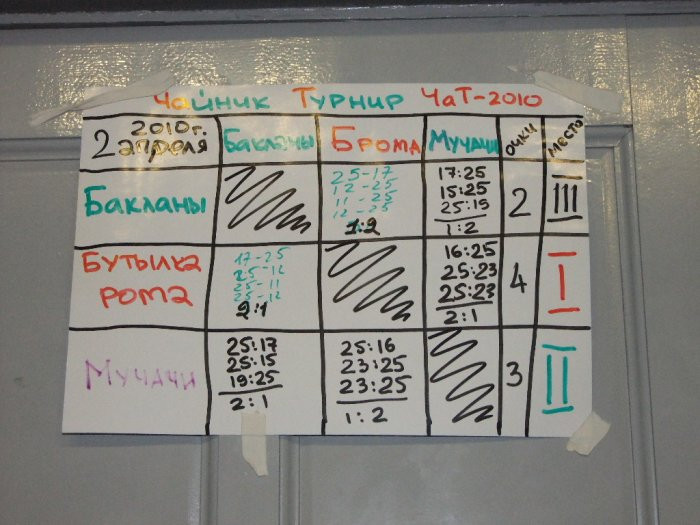 Чайник Турнир ЧаТ-2010
2010г.
2 апреля
Бакланы
Брома
Мучачи
очки
место
Бакланы
25-17
12-25
11-25
12-25
1:2
17:25
15:25
25:19
1:2
2
III
Бутылка
рома
17-25
25-12
25-11
25-12
2:1
16:25
25:23
25:23
2:1
4
I
Мучачи
25:17
25:15
19:25
2:1
25:16
23:25
23:25
1:2
3
II